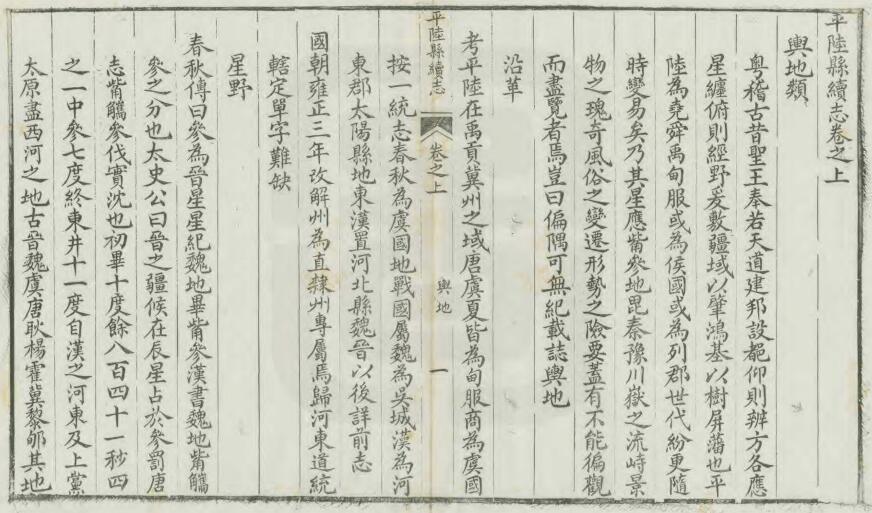 平陸縣續志卷之上
輿地類
粤稽古昔聖王奉若天道建邦設都仰則辨方各應
星纏俯則經野爰敷疆域以肇鴻基以樹屏藩也平
陸為堯舜禹甸服或為侯國或為列郡世代紛更隨
時變易矣乃其星應觜參地毘秦豫川嶽之流峙景
物之瑰奇風俗之變遷形勢之險要蓋有不能徧觀
而盡覽者焉豈曰偏隅可無紀載誌輿地
沿革
考平陸在禹貢冀州之域唐虞夏皆為甸服商為虞國
平陸縣續志 卷之上 輿地 一
按一統志春秋為虞國地戰國屬魏為吳城漢為河
東郡太陽縣地東漢置河北縣魏晉以後詳前志
國朝雍正三年改解州為直隸州專屬焉歸河東道統
轄定單字難缺
星野
春秋傳曰參為晉星星紀魏地畢觜參漢書魏地觜觿
參之分也太史公曰晉之疆候在辰星占於參罰唐
志觜觿參伐實沈也初畢十度餘八百四十一秒四
之一中參七度終東井十一度自漢之河東及上黨
太原盡西河之地古晉魏虞唐耿楊霍冀黎郇其地